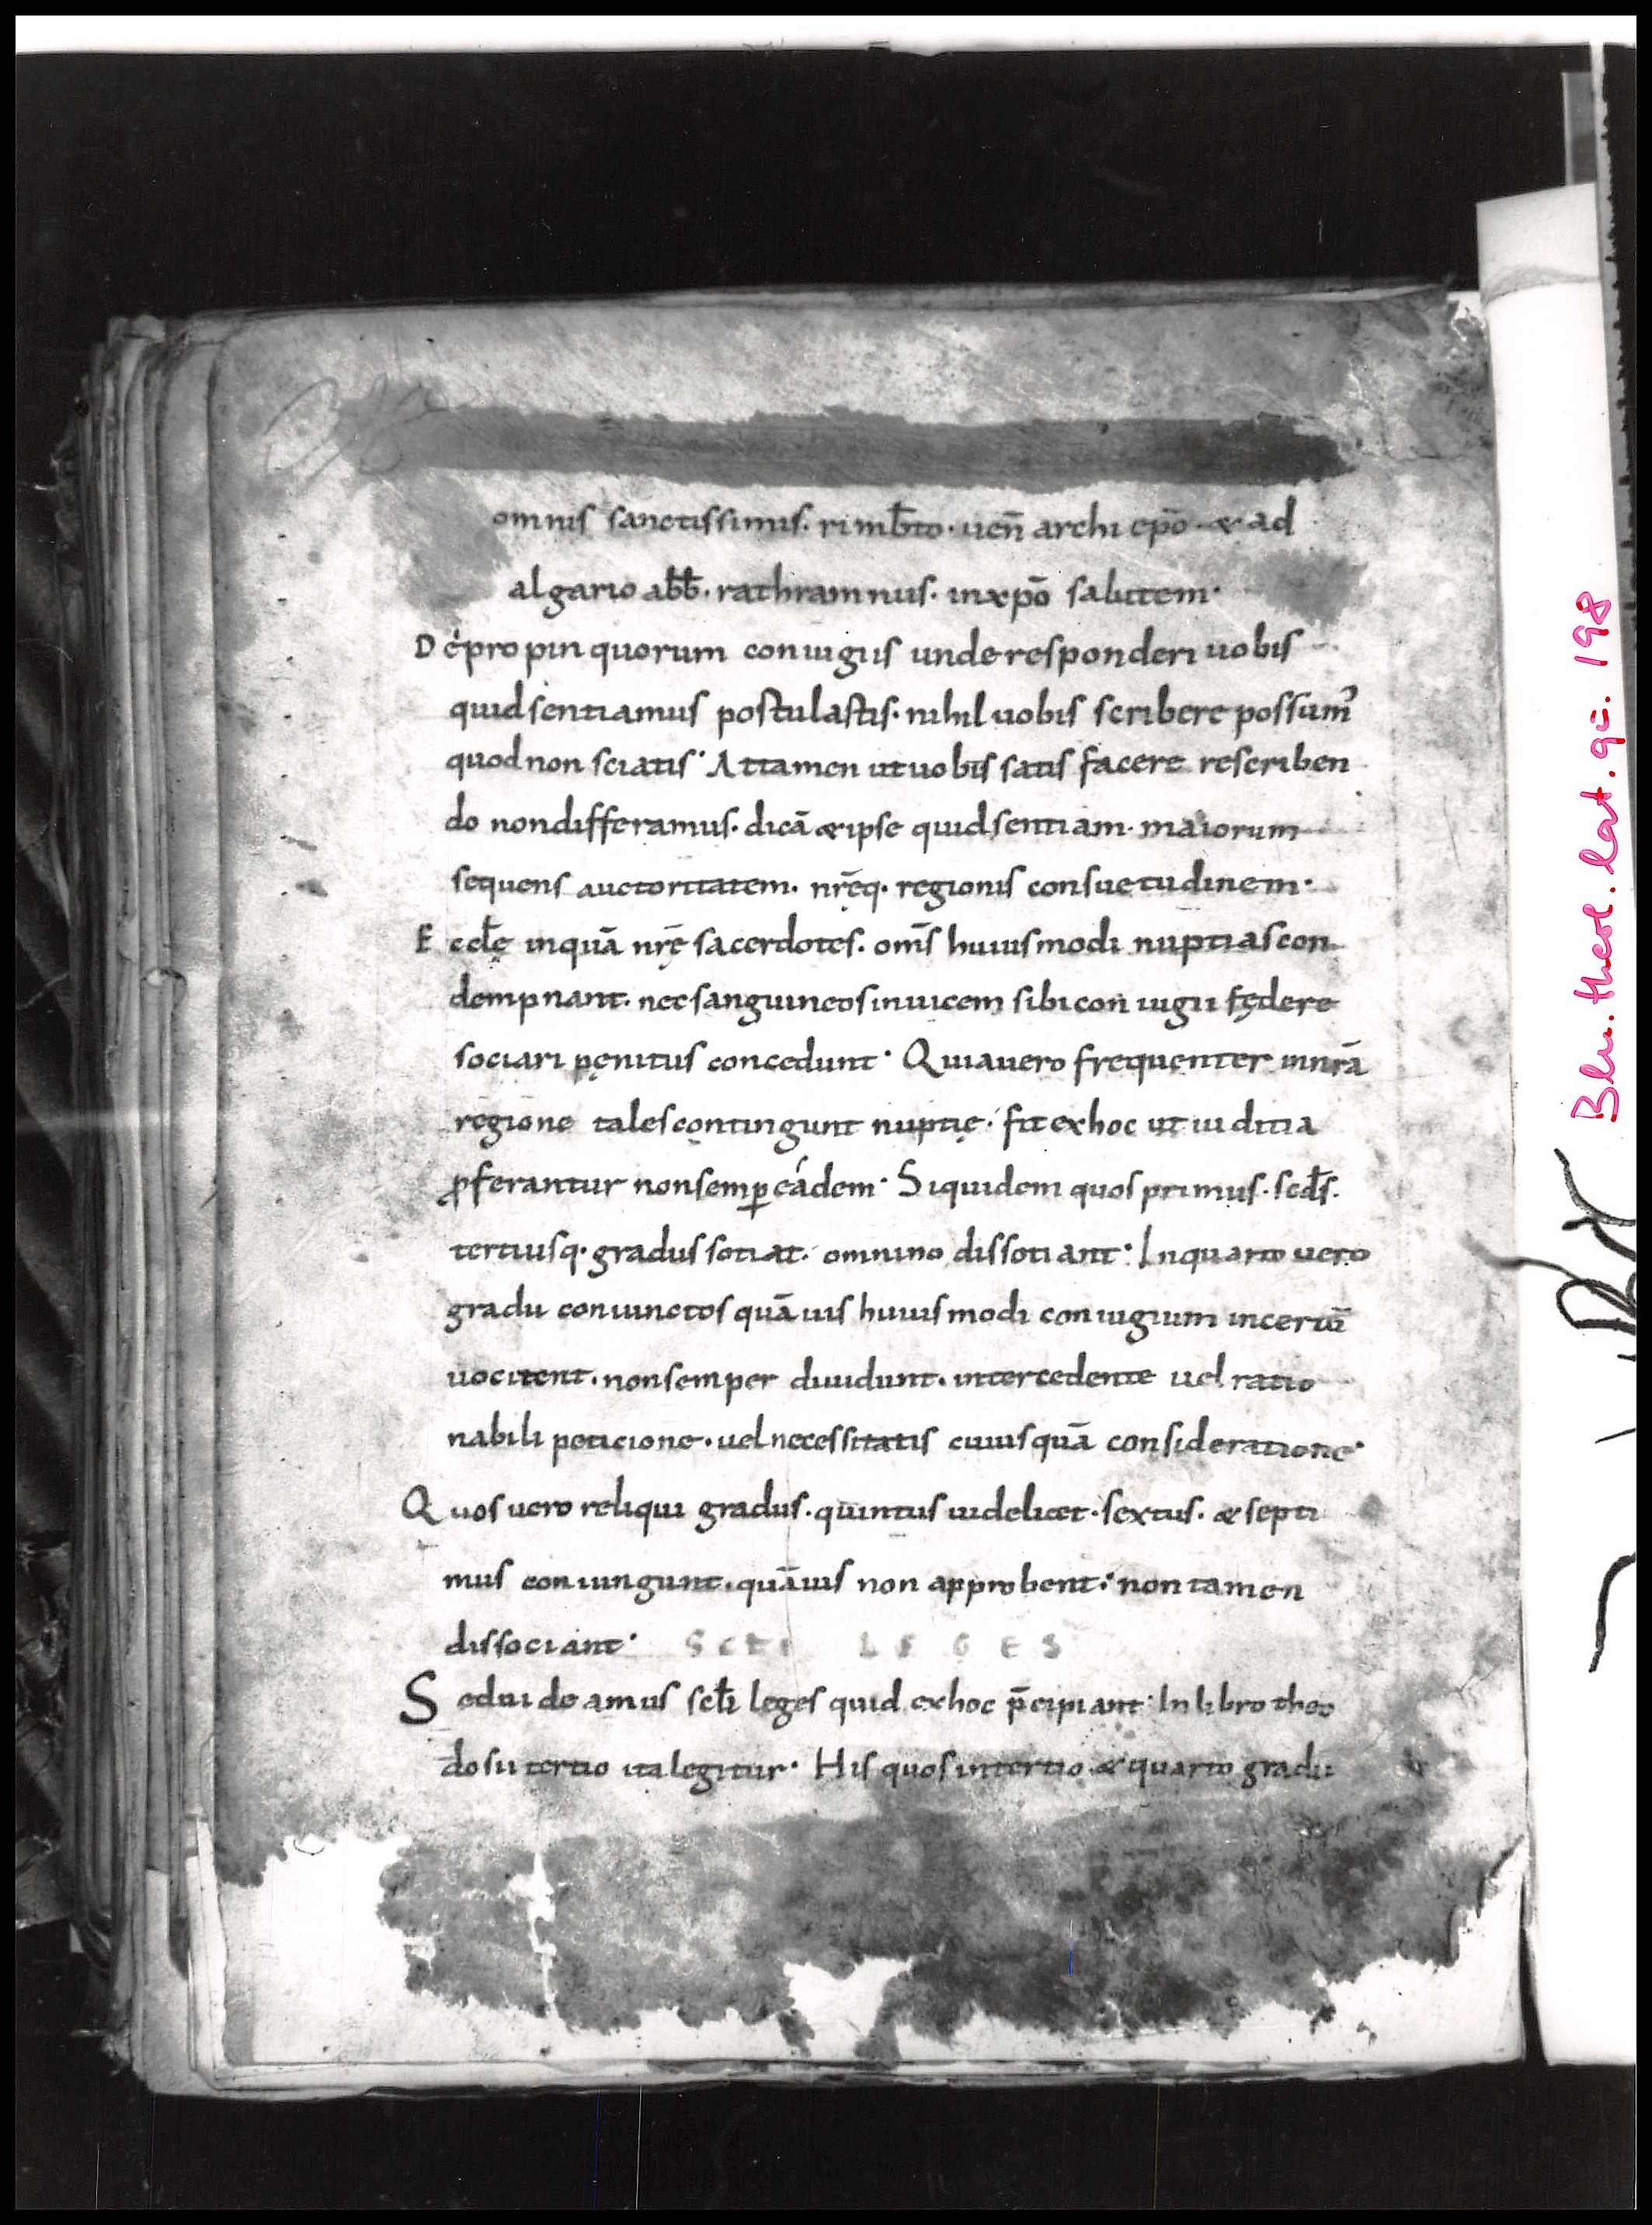 omnis sanctissimis. rimb̄to. uen̄ archi ep̄o & ad
algario ab̄b̄. rathramnus. inxp̄o salutem.
De propinquorum coniugiis unde responderi uobis
quid sentiamus postulastis. nihil uobis scribere possum᾿
quod non sciatis. Attamen ut uobis satis facere rescriben
do non differamus. dicā & ipse quid sentiam. maiorum
sequens auctoritatem. nr̄ęq. regionis consuetudinem.
Eccl̄ę inquā nr̄ę sacerdotes. om̄s huiusmodi nuptias con
dempnant. nec sanguineos inuicem sibi coniugii fędere
sociari pęnitus concedunt. Quia uero frequenter in nr̄ā
regione tales contingunt nuptię. fit ex hoc ut iuditia
ꝓferantur non semꝑ eádem. Siquidem quos primus. scd̄s.
tertiusq. gradus sotiat. omnino dissotiant. In quarto uero
gradu coniunctos quāuis huiusmodi coniugium incertū
uocitent. non semper diuidunt. intercedente uel ratio
nabili peticione. uel necessitatis cuiusquā consideratione.
Quos uero reliqui gradus. quintus uidelicet. sextus. & septi
mus coniungunt. quāuis non approbent. non tamen
dissociant. LEGES
Sed uideamus scl̄i leges quid ex hoc p̄cipiant. In libro theo
dosii tertio ita legitur. His quos in tertio & quarto gradu
Blu. theol. lat. qu. 198